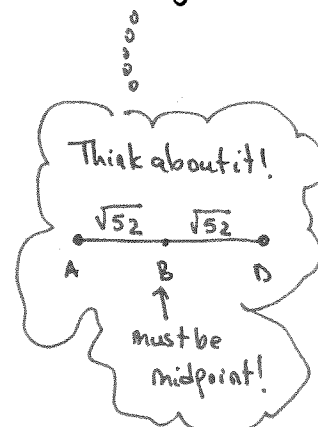 Think about it!
√52 √52
A B D
must be
midpoint!